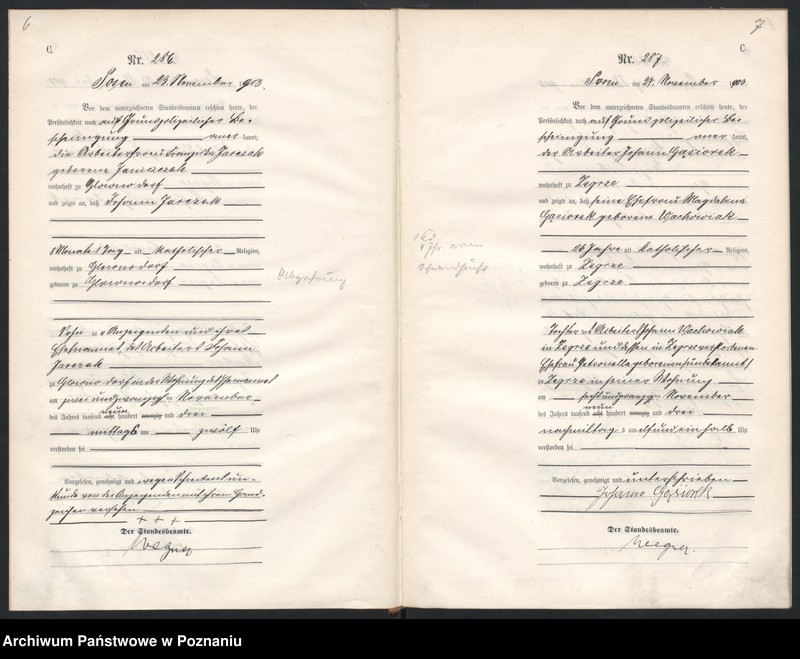 6
C.
Nr. 256.
Posen am 23. November 1903.
Vor dem unterzeichneten Standesbeamten erschien heute, der
Persönlichkeit nach auf Grund polizeilicher Be-
scheinigung aner kannt,
die Arbeiterfrau Jarczak
geborene
wohnhaft zu Glowno dorf
und zeigte an, daß Johann Jarczak
8 Monate 1 Tag alt katholischer Religion,
wohnhaft zu Glowno dorf
geboren zu Glowno dorf
Abzehrung
Sohn der Anzeigenden und ihres
Ehemannes, des Arbeiters Johann
Jarczak
zu Glowno dorf in der Wohnung des Ehemannes
am zwei und zwanzigsten November
des Jahres tausend neun hundert und drei
mittags um zwölf Uhr
verstorben sei
Vorgelesen, genehmigt und wegen Schreibens un-
kunde von der Anzeigenden mit ihrem Hand-
zeichen versehen
+ + +
Der Standesbeamte.
7
C.
Nr. 257
Posen am 24. November 1903.
Vor dem unterzeichneten Standesbeamten erschien heute, der
Persönlichkeit nach auf Grund polizeilicher Be-
scheinigung aner kannt,
der Arbeiter Johann Gąsiorek
wohnhaft zu Zegrze
und zeigte an, daß seine Ehefrau Magdalena
Gąsiorek geborene Wachowiak
26 Jahre alt katholischer Religion,
wohnhaft zu Zegrze
geboren zu Zegrze
Schwindsucht
Tochter des Arbeiters Johann Wachowiak
in Zegrze und dessen in Zegrze verstorbenen
Ehefrau Petronella geborenen (unbekannt)
zu Zegrze in seiner Wohnung
am November
des Jahres tausend neun hundert und drei
nachmittags um ein halb Uhr
verstorben sei
Vorgelesen, genehmigt und unterschrieben
Johann Gąsiorek
Der Standesbeamte.
Archiwum Państwowe w Poznaniu